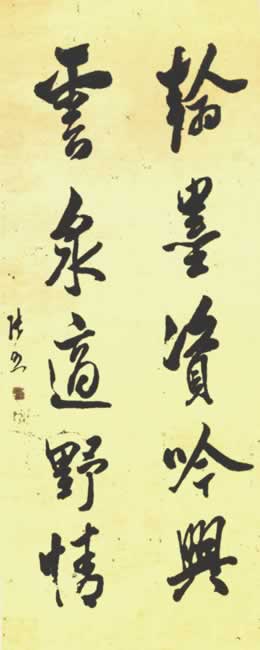 翰墨資吟興
雲泉適野情
張照